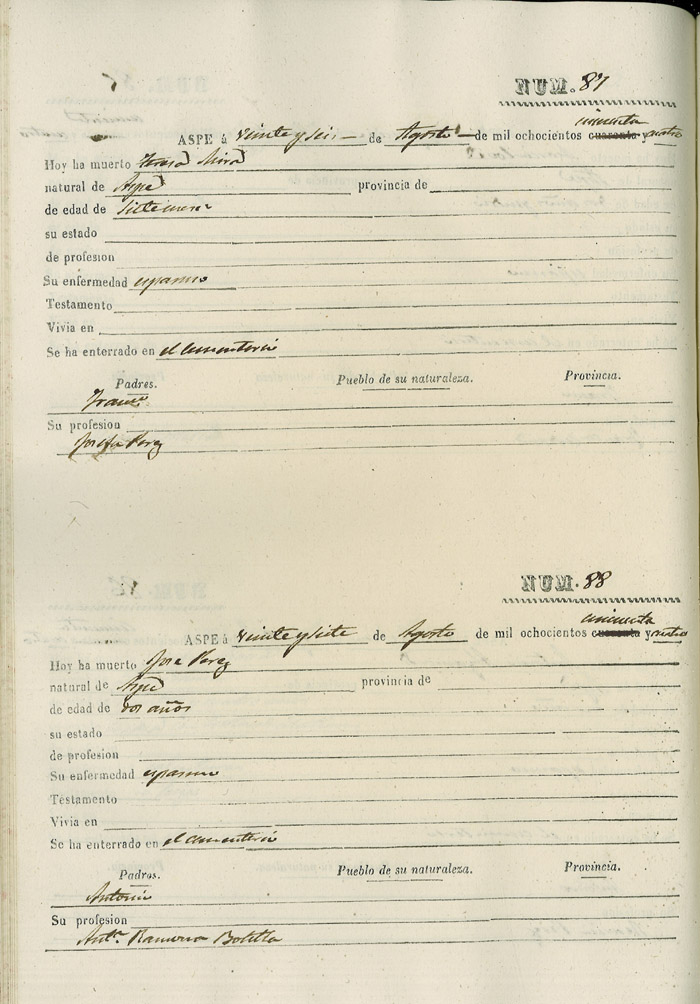 NUM. 87
cincuenta
ASPE á veinte y seis de Agosto de mil ochocientos cuarenta y cuatro
Hoy ha muerto Teresa Mira
natural de Aspe provincia de
de edad de siete meses
su estado
de profesion
Su enfermedad espasmo
Testamento
Vivia en
Se ha enterrado en el cementerio
Padres. Pueblo de su naturaleza. Provincia.
Franco
Su profesion
Josefa Perez
NUM. 88
cincuenta
ASPE á veinte y siete de Agosto de mil ochocientos cuarenta y cuatro
Hoy ha muerto Jose Perez
natural de Aspe provincia de
de edad de dos años
su estado
de profesion
Su enfermedad espasmo
Testamento
Vivia en
Se ha enterrado en el cementerio
Padres. Pueblo de su naturaleza. Provincia.
Antonio
Su profesion
Anta. Botella